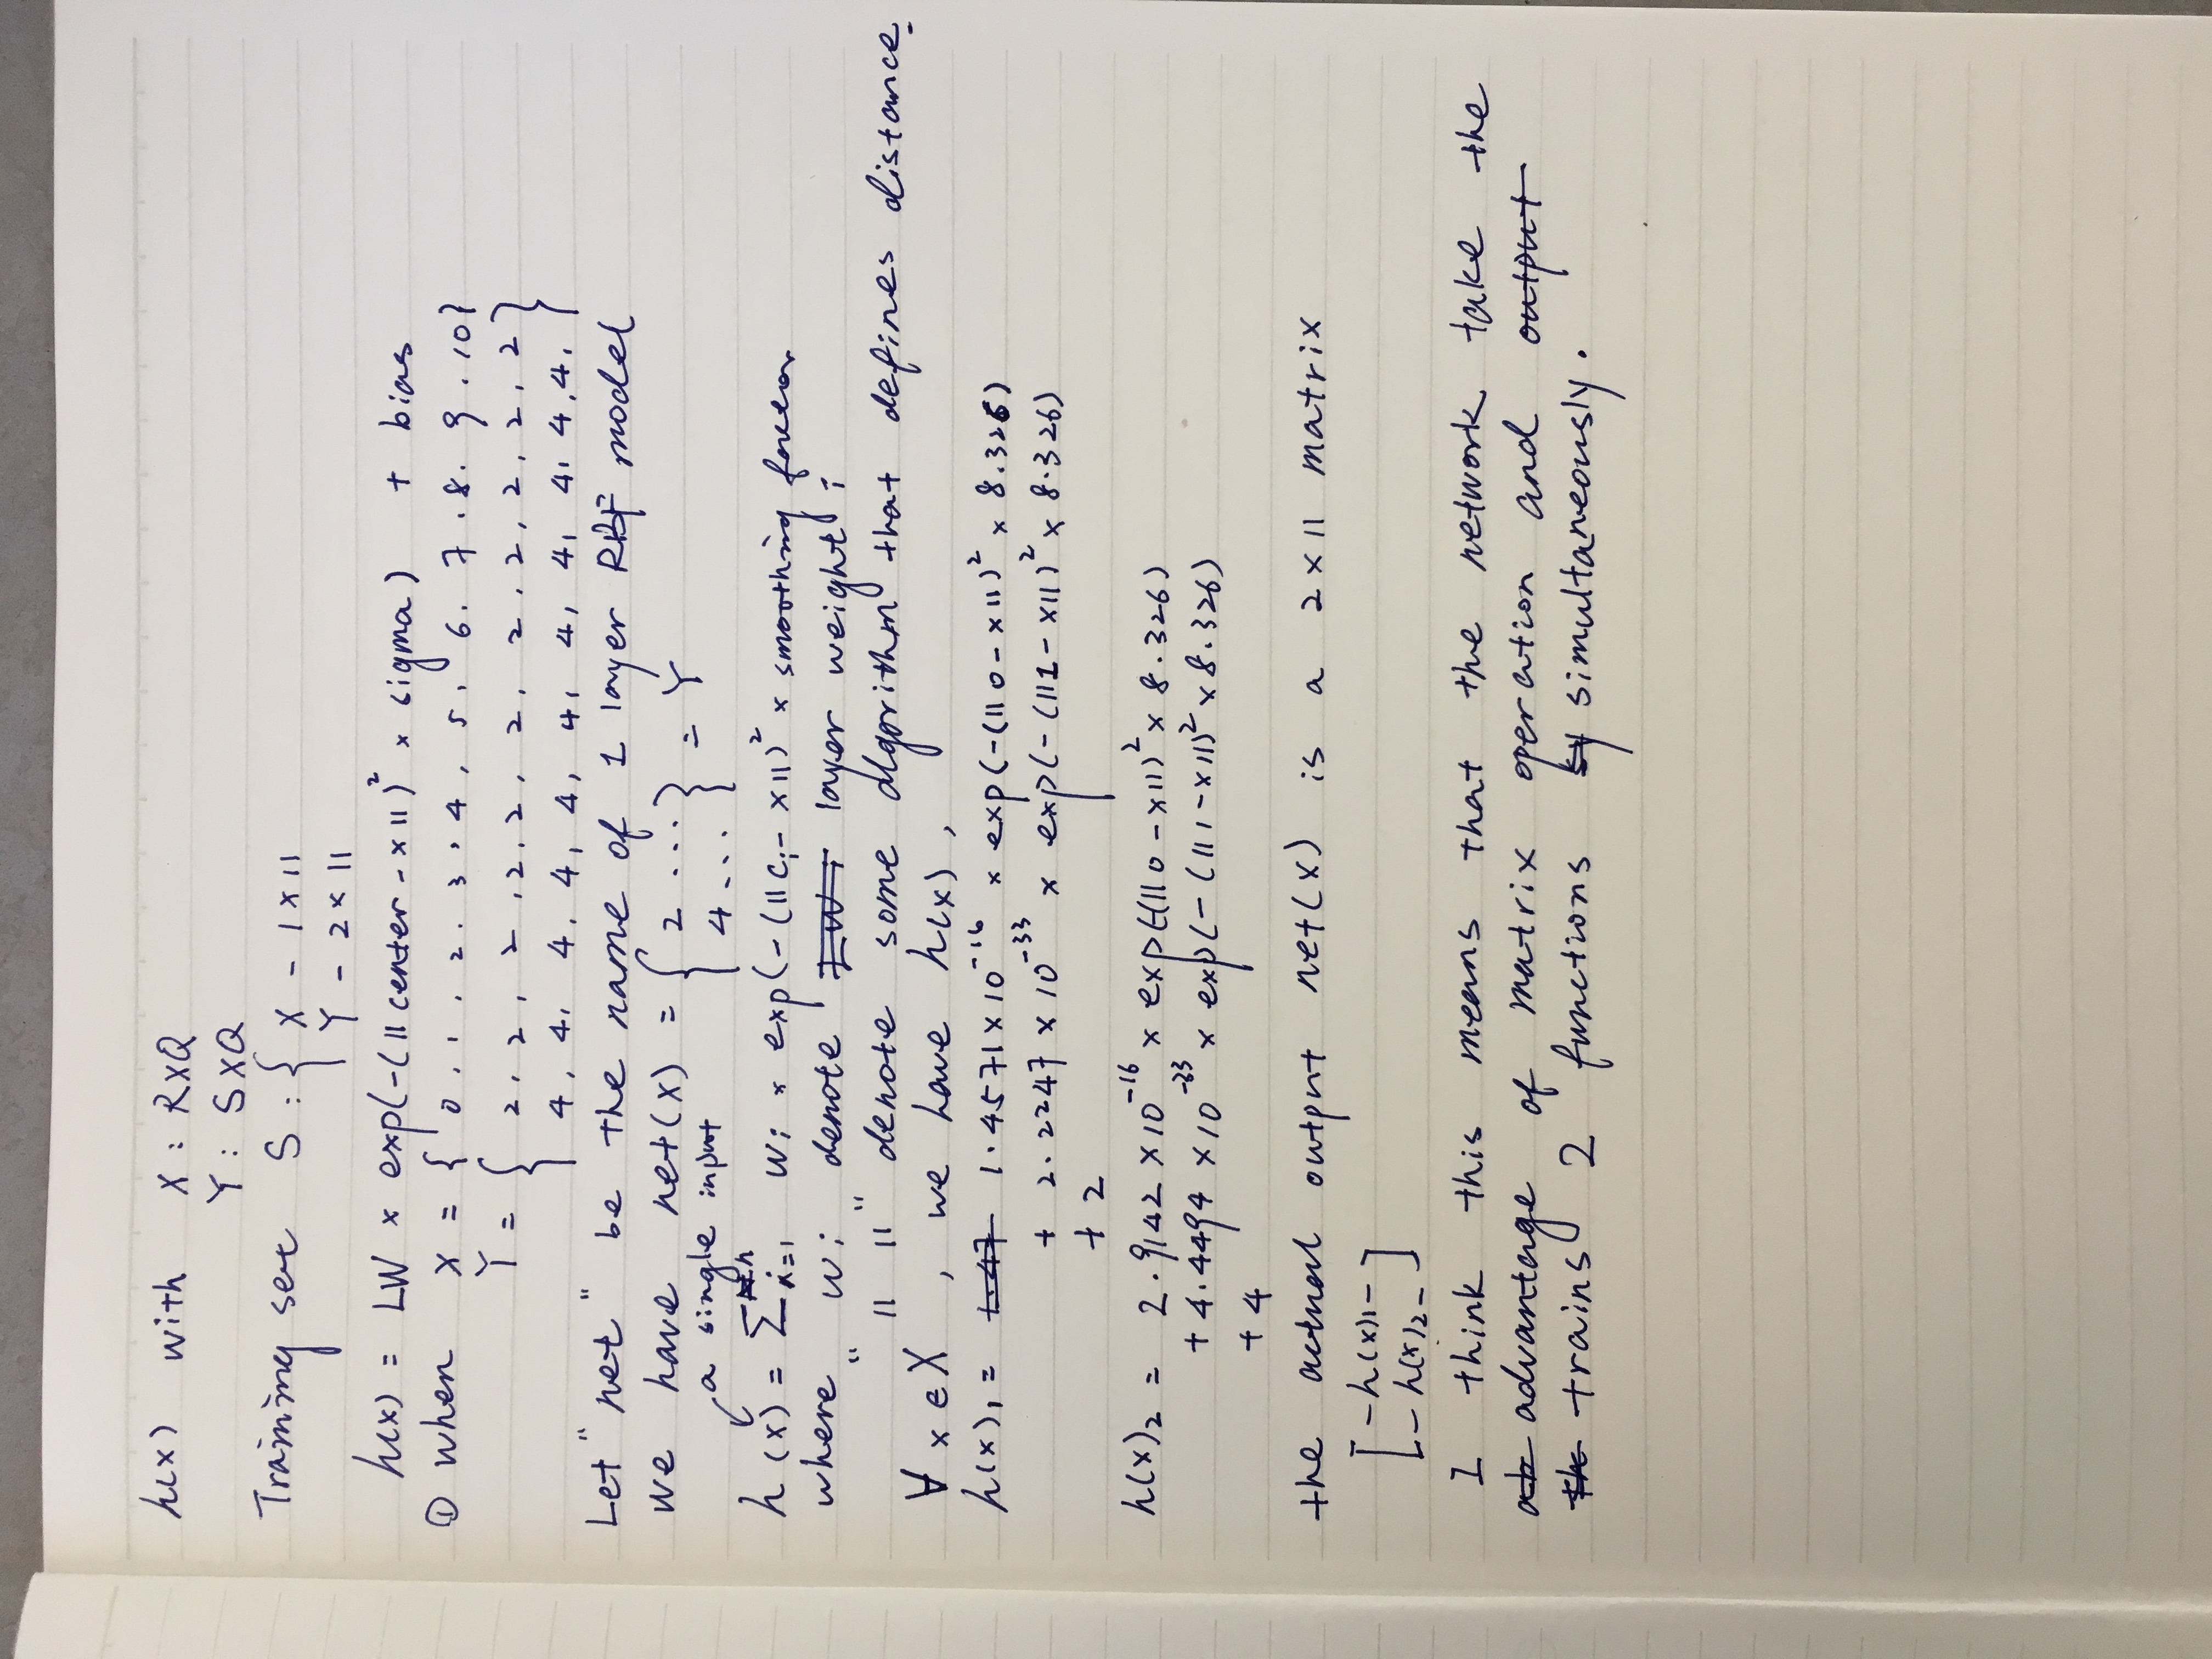 h(x) with X : R×Q
Y : S×Q
Training set S : { X - 1×11
Y - 2×11
h(x) = LW × exp(-(||center - x||)² × sigma) + bias
① when X = { 0, 1, 2, 3, 4, 5, 6, 7, 8, 9, 10}
Y = { 2, 2, 2, 2, 2, 2, 2, 2, 2, 2, 2
4, 4, 4, 4, 4, 4, 4, 4, 4, 4, 4, }
Let "net" be the name of 1 layer RBF model
we have net(x) = { 2 ...
4 ... } = Y
a single input
h(x) = Σⁿᵢ₌₁ wi × exp(-(||ci - x||)² × smoothing factor
where wi denote layer weight i
"|| ||" denote some algorithm that defines distance.
∀ x ∈ X, we have h(x),
h(x)₁ = 1.47 1.4571×10⁻¹⁶ × exp(-(||0 - x||)² × 8.326)
+ 2.2247 × 10⁻³³ × exp(-(||1 - x||)² × 8.326)
+ 2
h(x)₂ = 2.9142 ×10⁻¹⁶ × exp(-(||0 - x||)² × 8.326)
+ 4.4494 ×10⁻³³ × exp(-(||1 - x||)² × 8.326)
+ 4
the actual output net(x) is a 2×11 matrix
[ - h(x)₁ -
- h(x)₂ - ]
I think this means that the network take the
advantage of matrix operation and output
trains 2 functions simultaneously.